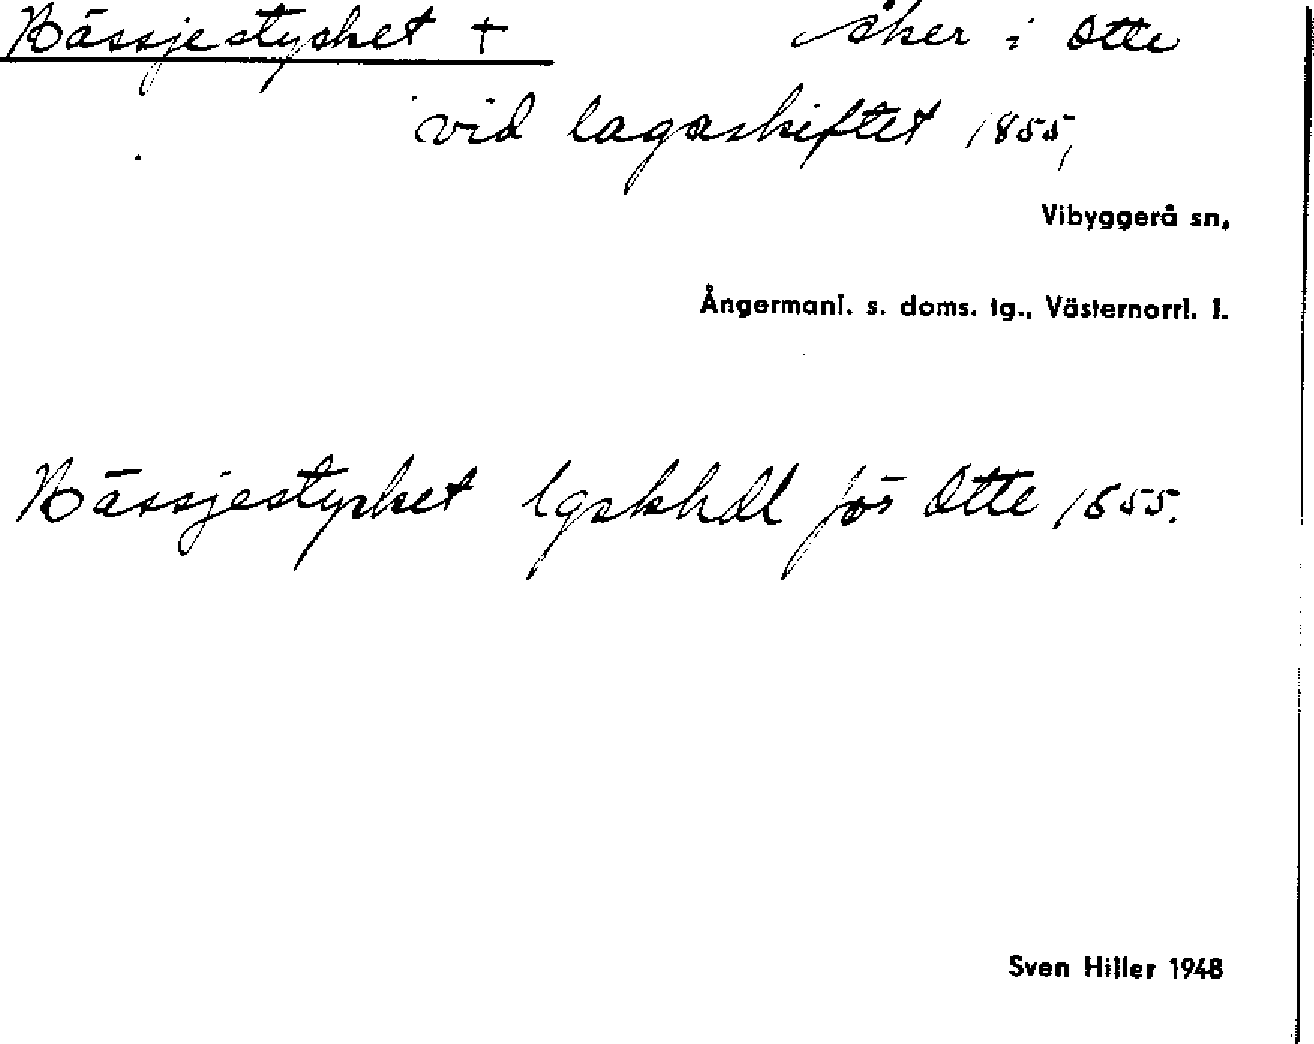 Bässjestycket + åker i Otte
vid lagaskiftet 1855,
Vibyggerå sn,
Ångermanl. s. doms. tg., Västernorrl. l.
Bässjestycket lgskhdl för Otte 1855.
Sven Hiller 1948